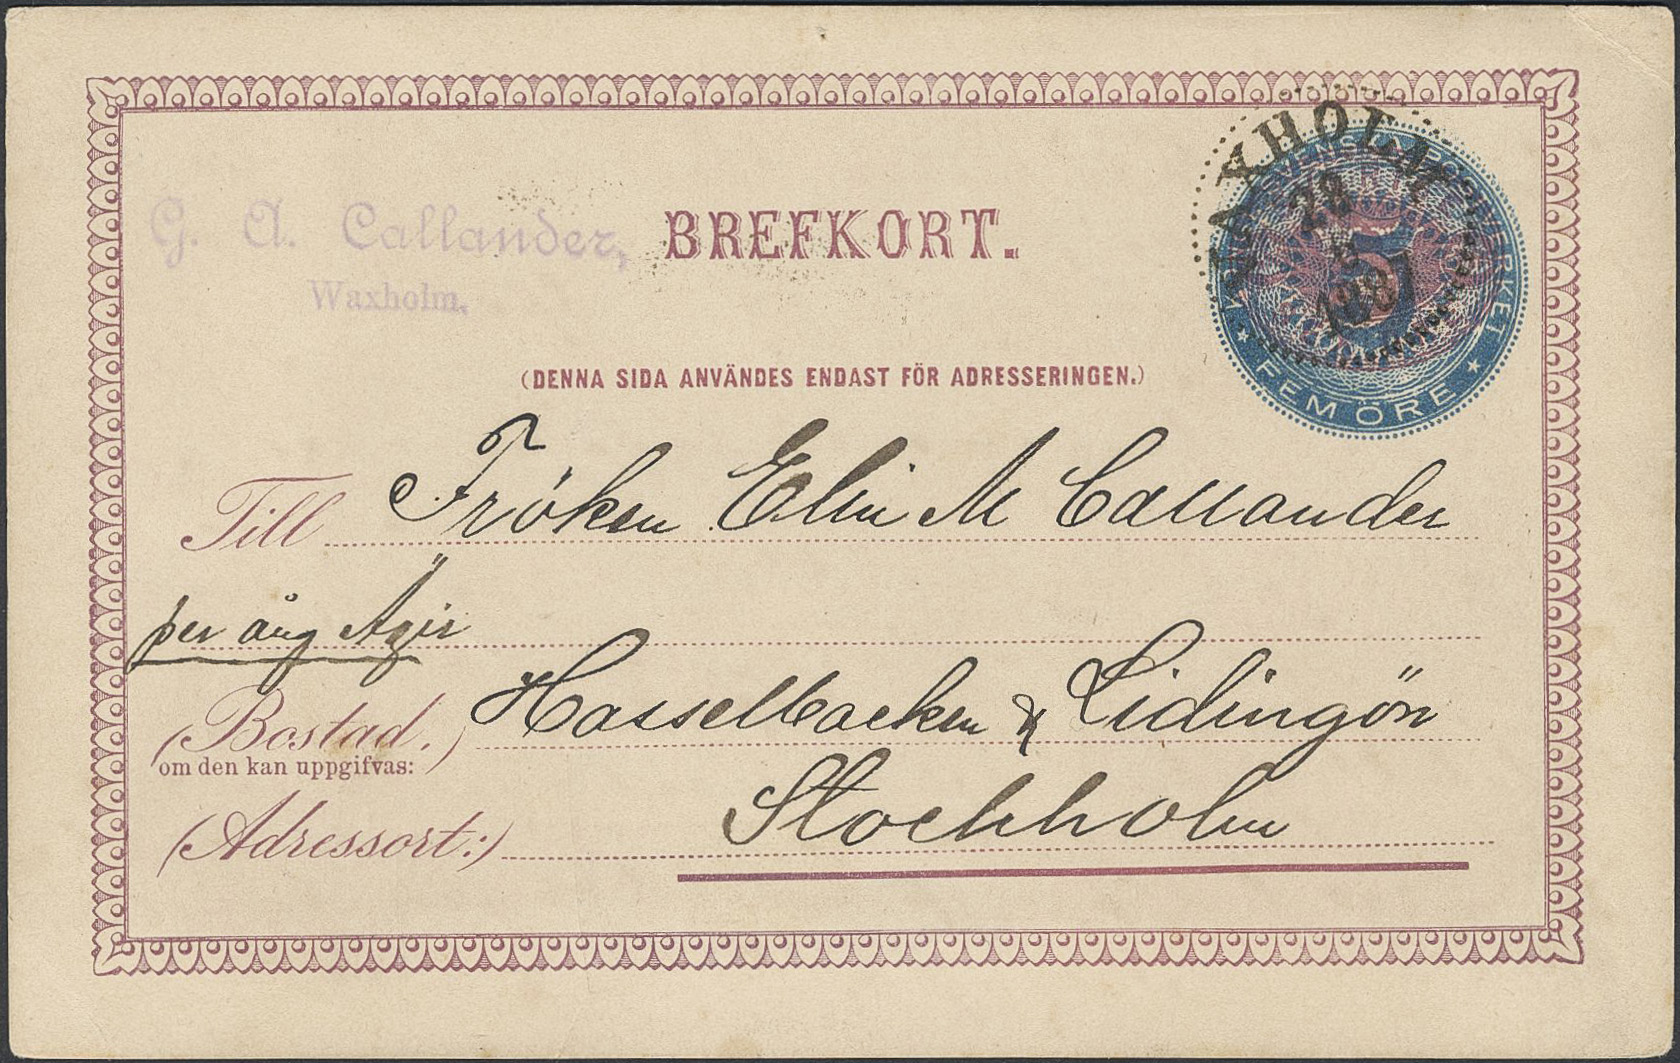 G. A. Callander,
Waxholm.
BREFKORT.
WAXHOLM
28
1887
SVENSKA POSTVERKET
FEM ÖRE
(DENNA SIDA ANVÄNDES ENDAST FÖR ADRESSERINGEN.)
Till Fröken Elin M Callander
per ång Ägir
(Bostad.) Hasselbacken & Lidingön
om den kan uppgifvas:
(Adressort:) Stockholm